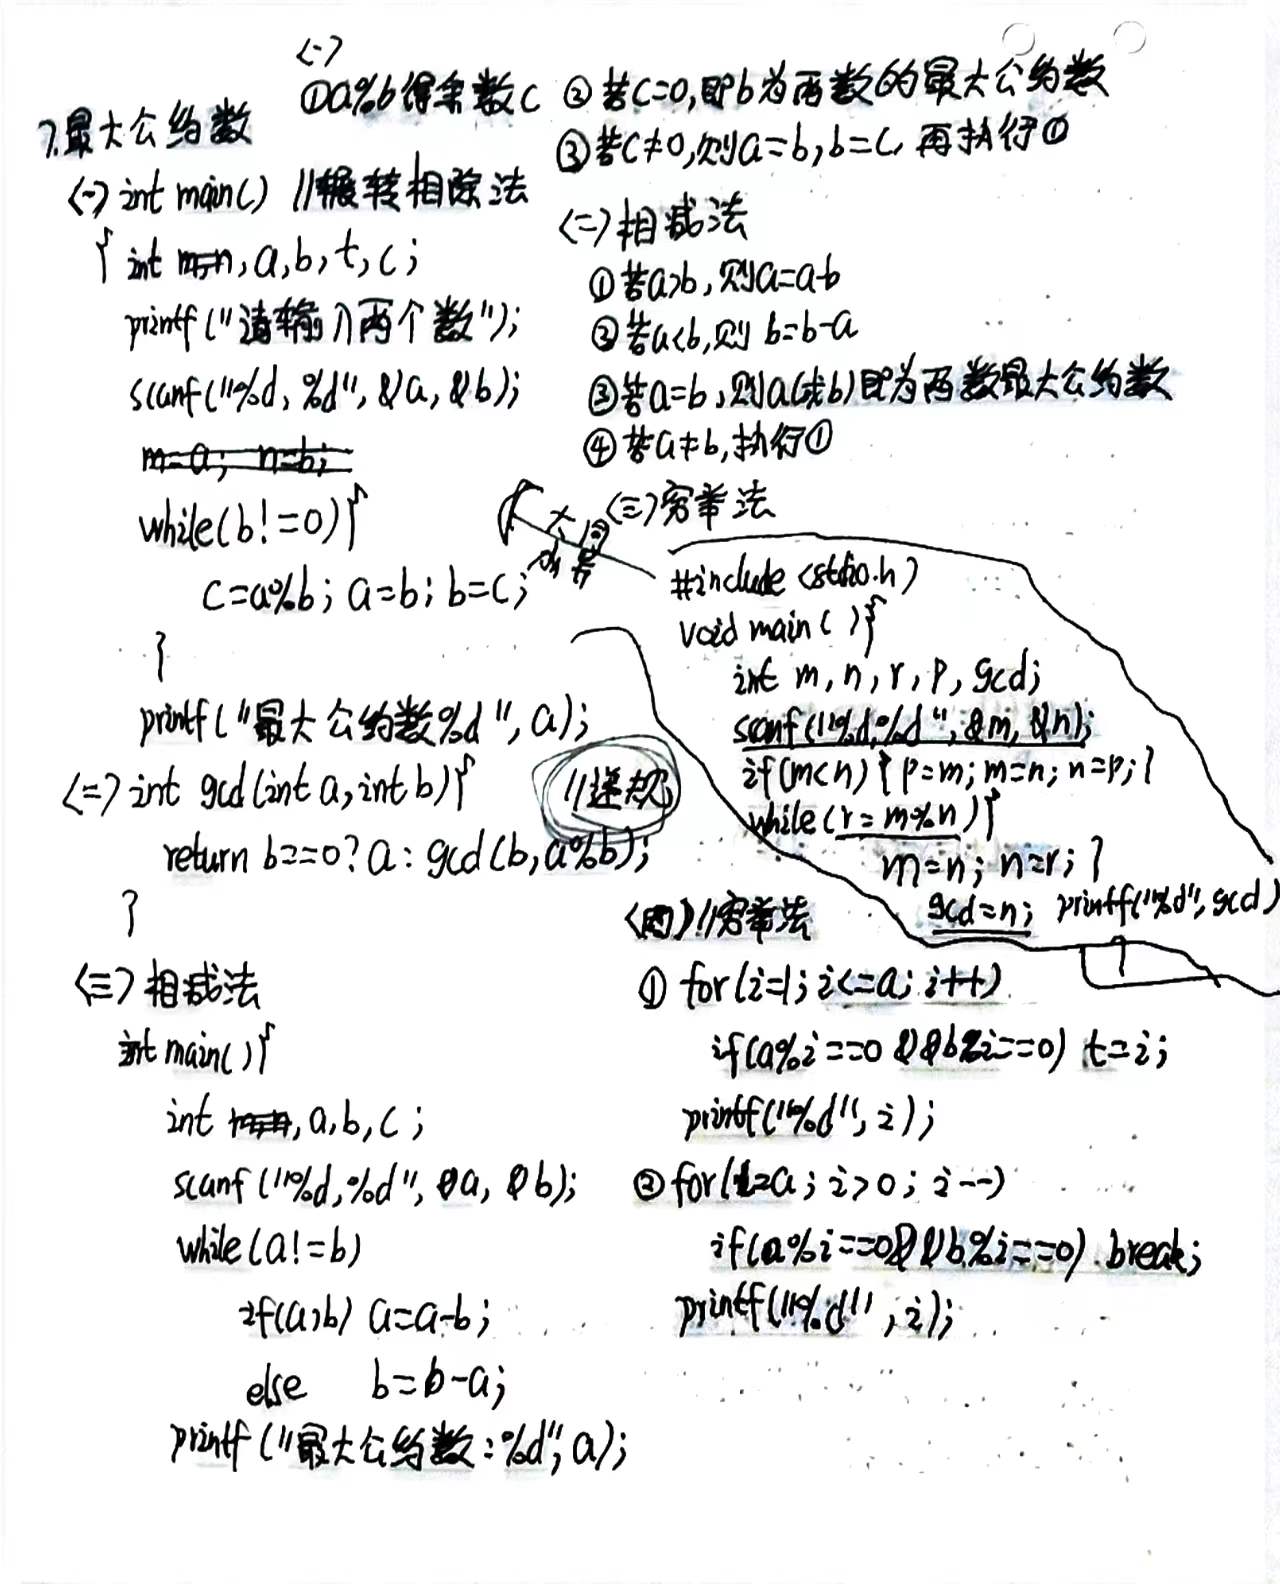 7.最大公约数
<一> int main() //辗转相除法
{ int m,n,a,b,t,c;
printf("请输入两个数");
scanf("%d,%d",&a,&b);
m=a; n=b;
while(b!=0){
c=a%b; a=b; b=c;
}
printf("最大公约数%d",a);
<二> int gcd(int a,int b){ //递规
return b==0?a:gcd(b,a%b);
}
<三> 相减法
int main(){
int m,n,a,b,c;
scanf("%d,%d",&a,&b);
while(a!=b)
if(a>b) a=a-b;
else b=b-a;
printf("最大公约数:%d",a);
<一>
①a%b得余数c ②若c=0,即b为两数的最大公约数
③若c≠0,则a=b,b=c,再执行①
<二>相减法
①若a>b,则a=a-b
②若a<b,则 b=b-a
③若a=b,则a(或b)即为两数最大公约数
④若a≠b,执行①
<三>穷举法
大同
小异
#include<stdio.h>
void main(){
int m,n,r,p,gcd;
scanf("%d,%d",&m,&n);
if(m<n){p=m;m=n;n=p;}
while(r=m%n){
m=n; n=r;}
gcd=n; printf("%d",gcd)
}
<四>//穷举法
① for(i=1;i<=a;i++)
if(a%i==0&&b%i==0) t=i;
printf("%d",i);
②for(i=a;i>0;i--)
if(a%i==0&&b%i==0) break;
printf("%d",i);